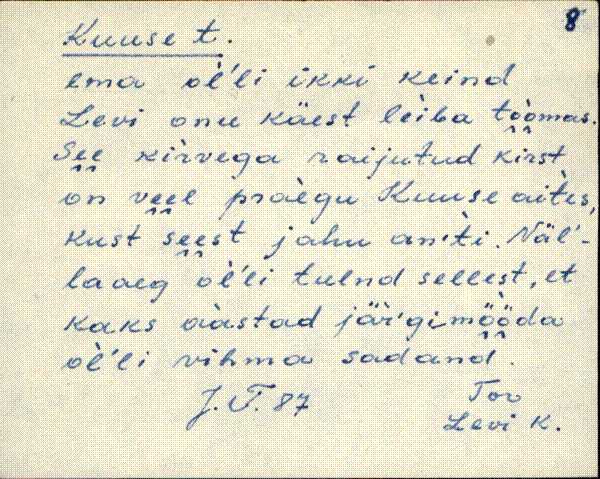 8
Kuuse t.
ema òl̀'li ikki keind
Levi onu käest lèiba tòòmas.
See kìrvega raijutud kirst
on veel pràègu Kuuse aìtes,
kust seest jahu an'ti. Näl'-
laaeg òl̀'li tulnd sellest, et
kaks aàstad jär'gimö̀ö̀da
òl̀'li vihma sadand.
J. T. 87
Tor
Levi K.